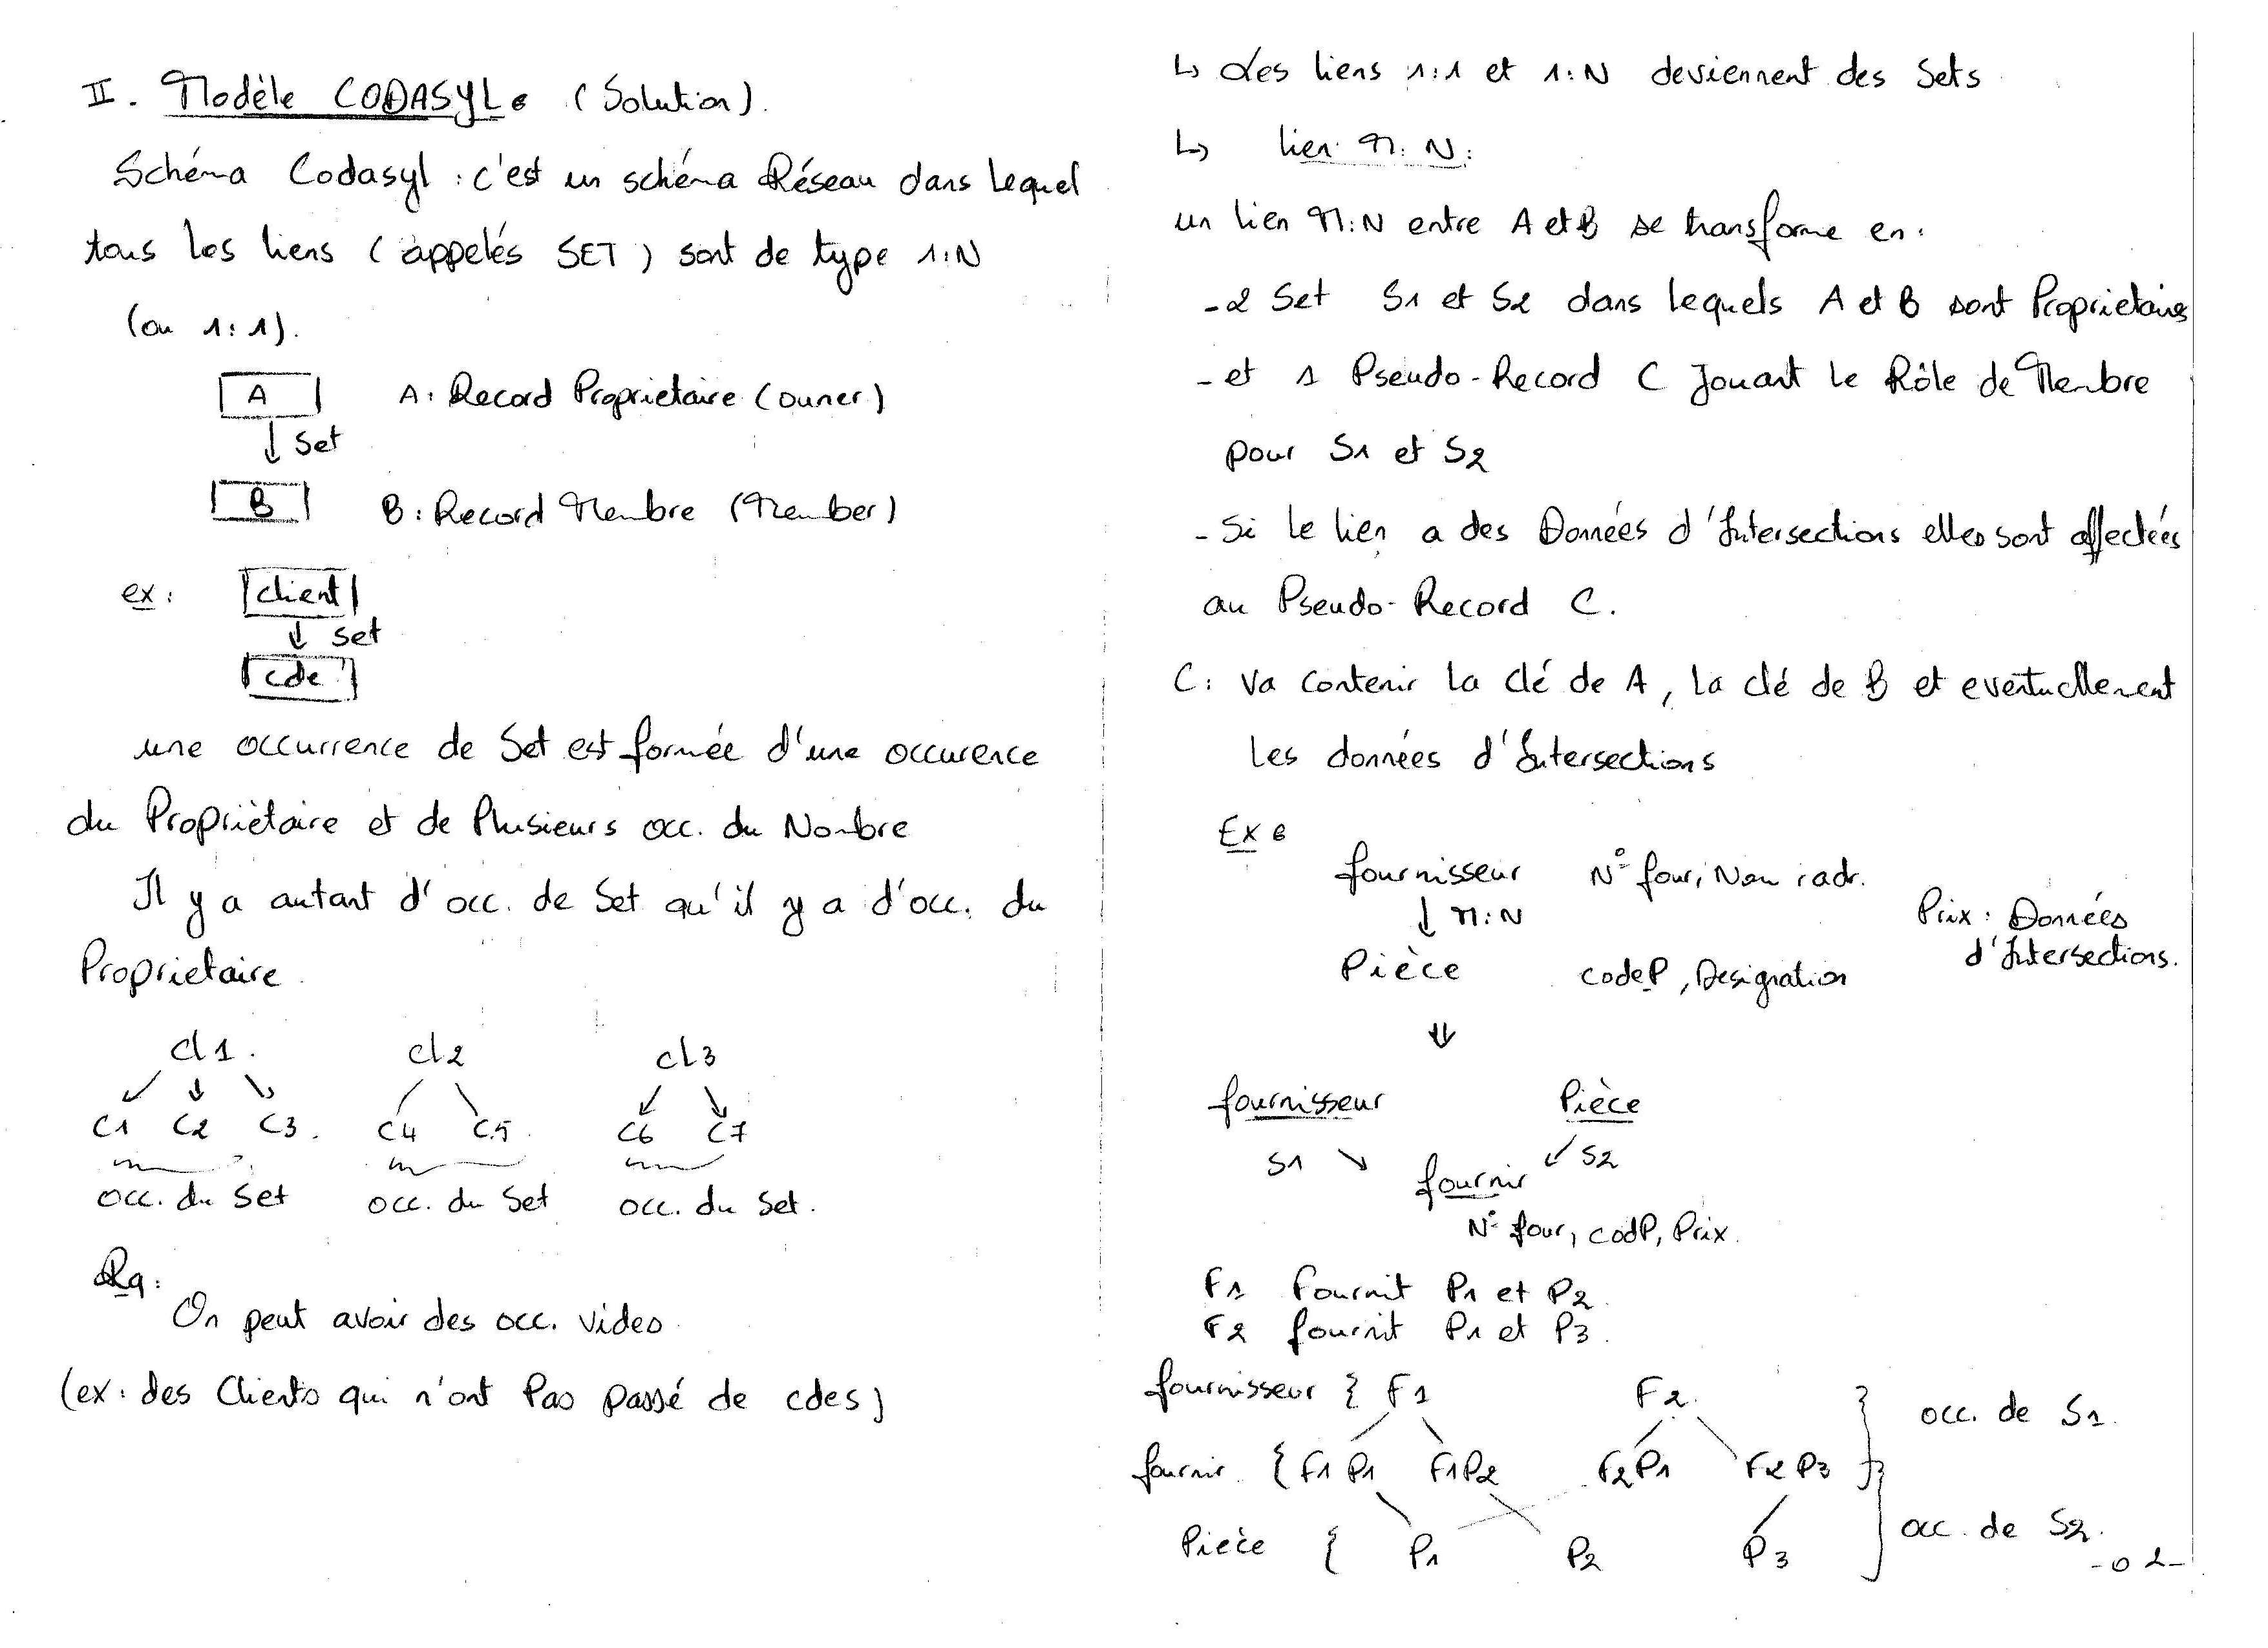 II. Modèle CODASYL: (Solution).
Schéma Codasyl : c'est un schéma Réseau dans Lequel
tous Les liens (appelés SET) sont de type 1:N
(ou 1:1).
A
A: Record Proprietaire (owner)
Set
B
B: Record Membre (Member)
ex:
client
Set
cde
une occurrence de Set est formée d'une occurence
du Propriètaire et de Plusieurs occ. du Nombre
Il y a autant d'occ. de Set qu'il y a d'occ. du
Proprietaire
cl1 cl2 cl3
C1 C2 C3 C4 C5 C6 C7
occ. du Set occ. du Set occ. du Set.
Rq:
On peut avoir des occ. vides
(ex: des Clients qui n'ont Pas passé de cdes)
↳ Les liens 1:1 et 1:N deviennent des Sets
↳ lien M:N:
un lien M:N entre A et B se transforme en:
-2 Set S1 et S2 dans lequels A et B sont Proprietaires
-et 1 Pseudo-Record C Jouant le Rôle de Membre
pour S1 et S2
-Si le lien a des Données d'Intersections elles sont affectées
au Pseudo-Record C.
C: Va contenir La clé de A, La clé de B et eventuellement
Les données d'Intersections
Ex:
fournisseur N° four, Nom, adr.
M:N
Prix: Données
d'Intersections.
Pièce codeP, Designation
⇓
fournisseur Pièce
S1 S2
fournir
N° four, codP, Prix.
F1 Fournit P1 et P2
F2 fournit P1 et P3.
fournisseur { F1 F2 } occ. de S1.
fournir { F1P1 F1P2 F2P1 F2P3
Pièce { P1 P2 P3 } occ. de S2.
-02-